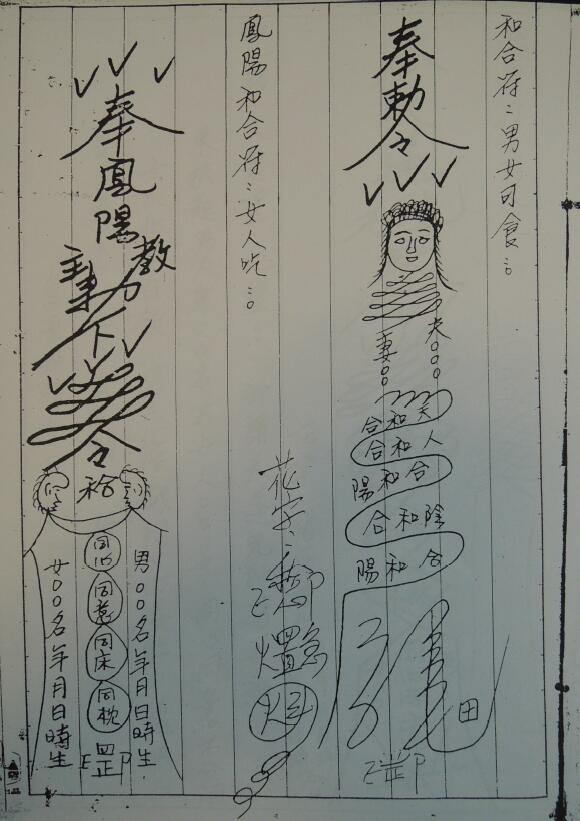 和合符：男女可食：。
奉勅令
夫〇〇〇
妻〇〇〇
合和夫
合和人
陽和合
合和陰
陽和合
田
罡
鳳陽和合符：女人吃：。
花字：
奉鳳陽教
勅下
令
和合
男〇〇名年月日時生
同心
同意
同床
同枕
罡
女〇〇名年月日時生